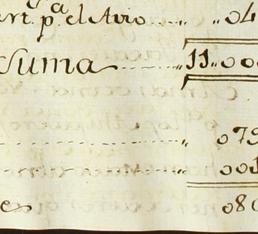 art. p.a el Avio ,, ,,04
Suma ,, 11 00
,, 079
,, 001
es 080